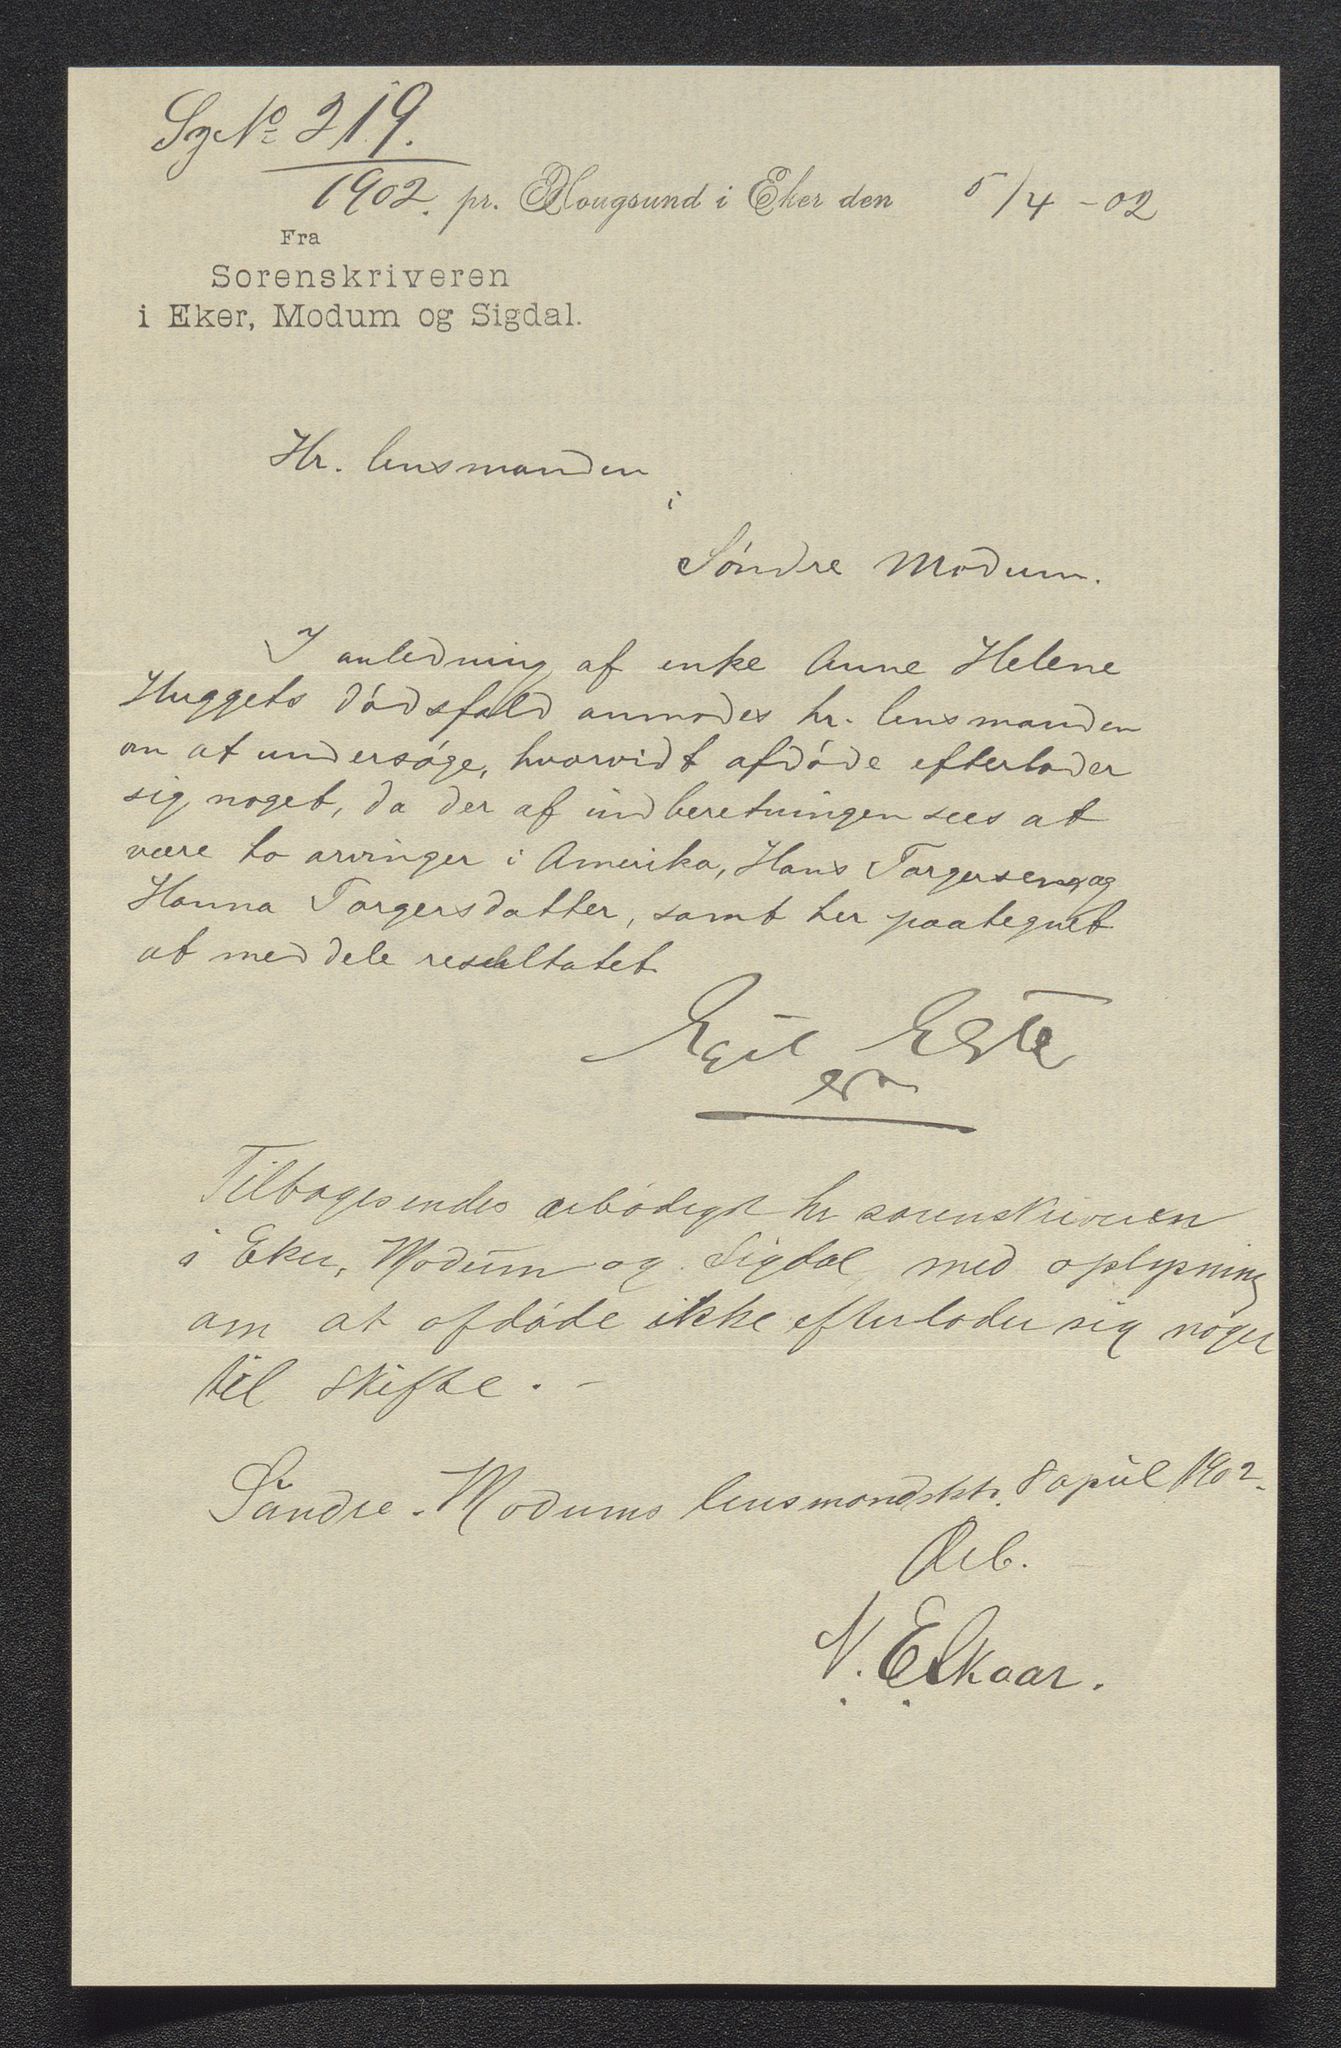 Sg No 219.
1902. pr. Hougsund i Eker den 5/4 - 02
Fra
Sorenskriveren
i Eker, Modum og Sigdal.
Hr. lensmanden
i
Søndre Modum.
I anledning af enke Anne Helene
Huggets dødsfald anmodes hr. lensmanden
om at undersøge, hvorvidt afdøde efterlader
sig noget, da der af indberetningen sees at
være to arvinger i Amerika, Hans Torgersen og
Hanna Torgersdatter, samt her paategnet
at meddele resultatet
Egil
Tilbagesendes ærbødigst hr sorenskriveren
i Eker, Modum og Sigdal med oplysning
om at afdøde ikke efterlader sig noget
til skifte. -
Søndre - Modums lensmandsktr. 8 april 1902.
Ærb.
N. Elkaar.